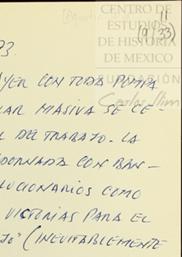 CENTRO DE
ESTUDIOS
DE HISTORIA
DE MEXICO
FUNDACIÓN
Carlos Slim
11
(9/33)
93
AYER CON TODA POMPA
LAR MASIVA SE CE-
L DEL TRABAJO. LA
DORNADA CON BAN-
LUCIONARIOS COMO
VICTORIAS PARA EL
JO" (INEVITABLEMENTE